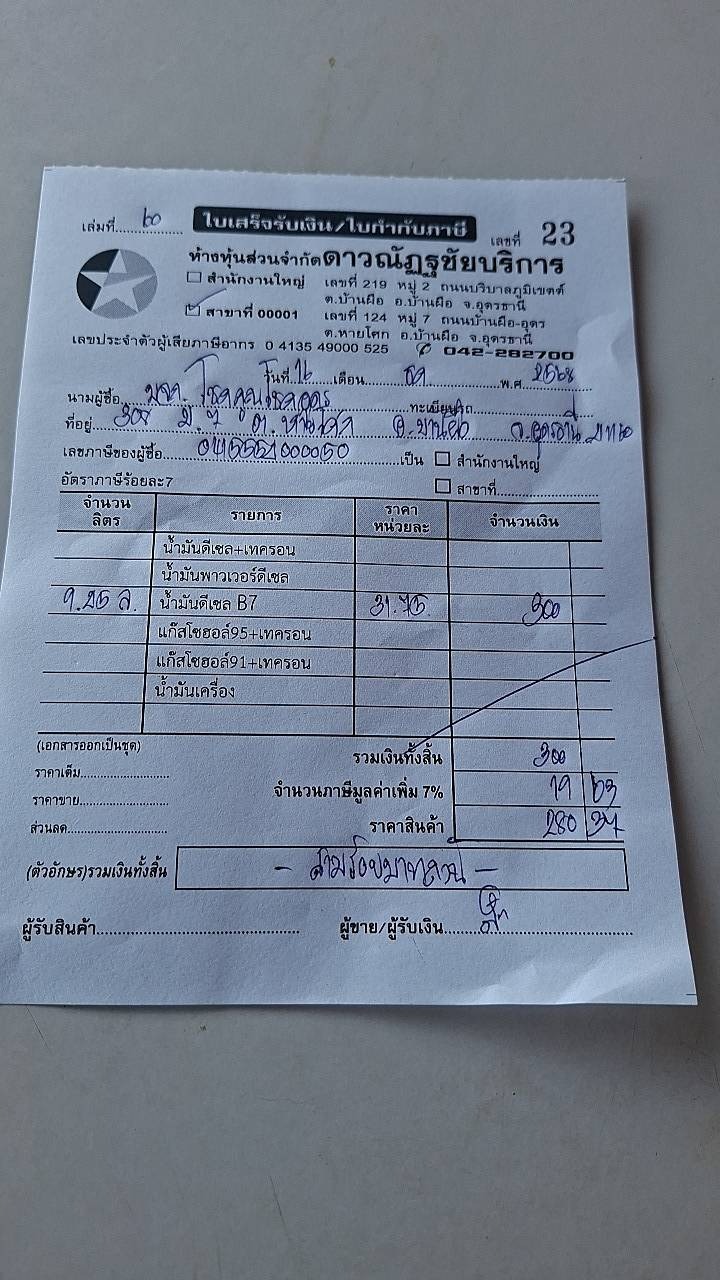 เล่มที่ 60
ใบเสร็จรับเงิน/ใบกำกับภาษี
เลขที่ 23
ห้างหุ้นส่วนจำกัดดาวณัฏฐชัยบริการ
สำนักงานใหญ่ เลขที่ 219 หมู่ 2 ถนนบริบาลภูมิเขตต์
ต.บ้านผือ อ.บ้านผือ จ.อุดรธานี
สาขาที่ 00001 เลขที่ 124 หมู่ 7 ถนนบ้านผือ-อุดร
ต.หายโศก อ.บ้านผือ จ.อุดรธานี
เลขประจำตัวผู้เสียภาษีอากร 0 4135 49000 525 042-282700
วันที่ 16 เดือน ธค พ.ศ 2568
นามผู้ซื้อ หจก. โชคคูณโชคอุดร ทะเบียนรถ
ที่อยู่ 309 ม.7 ต.หายโศก อ.บ้านผือ จ.อุดรธานี
เลขภาษีของผู้ซื้อ เป็น สำนักงานใหญ่
อัตราภาษีร้อยละ7 สาขาที่
จำนวนลิตร รายการ ราคาหน่วยละ จำนวนเงิน
น้ำมันดีเซล+เทครอน
น้ำมันพาวเวอร์ดีเซล
น้ำมันดีเซล B7 31.75 300
แก๊สโซฮอล์95+เทครอน
แก๊สโซฮอล์91+เทครอน
น้ำมันเครื่อง
(เอกสารออกเป็นชุด) รวมเงินทั้งสิ้น 300
ราคาเต็ม
จำนวนภาษีมูลค่าเพิ่ม 7% 19 63
ราคาขาย
ราคาสินค้า 280 37
ส่วนลด
(ตัวอักษร)รวมเงินทั้งสิ้น - สามร้อยบาทถ้วน -
ผู้รับสินค้า ผู้ขาย/ผู้รับเงิน